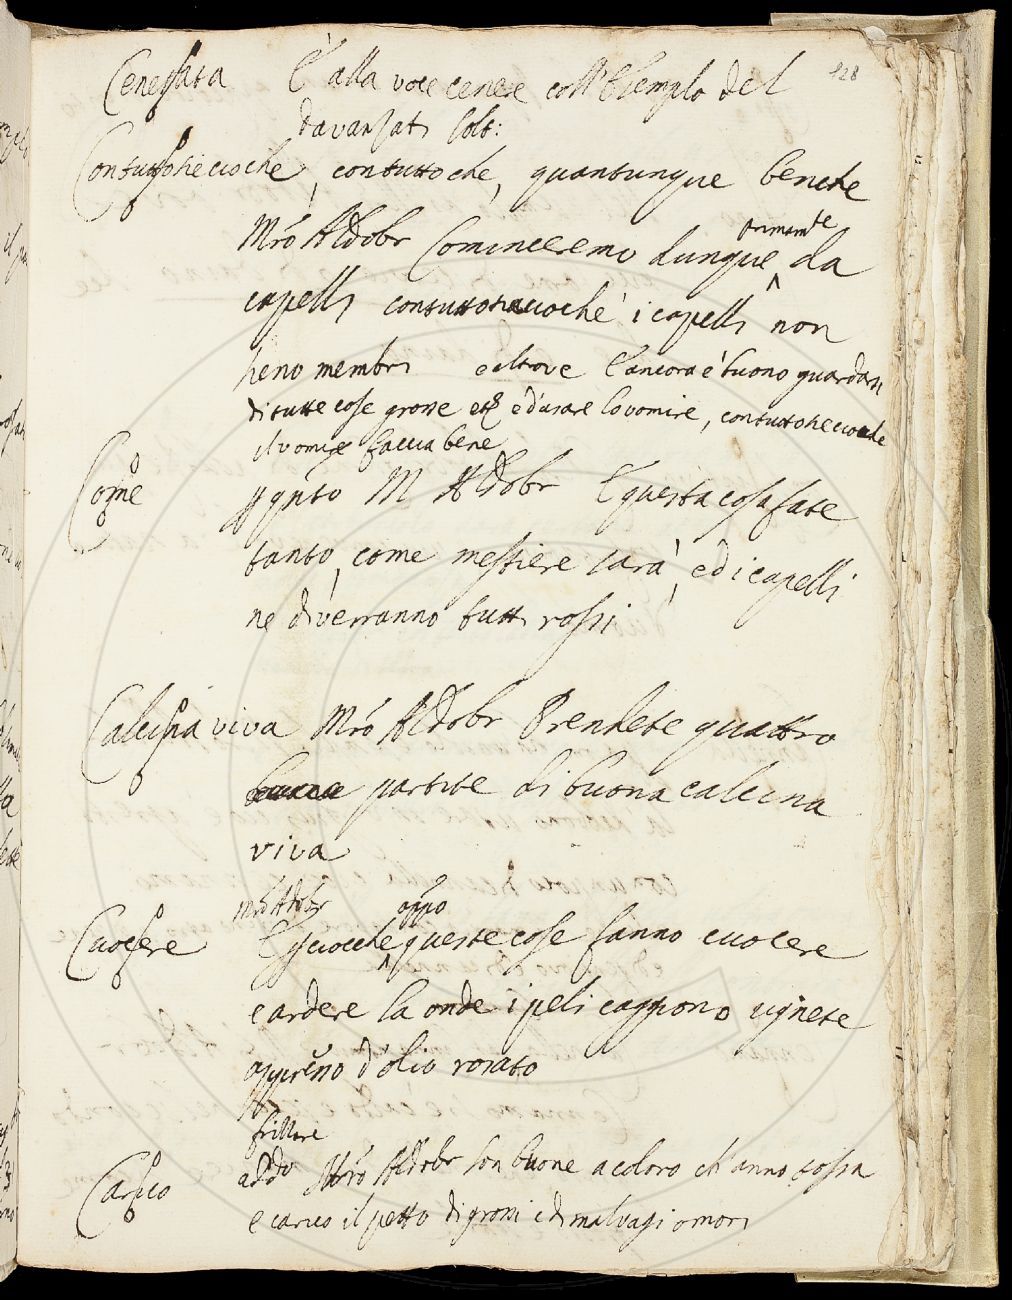 128
Cenerata È alla voce cenere coll'Esemplo del
Davanzati Colt:
Contuttosiecioche, contuttoche, quantunque benche
Mro Aldobr Cominceremo dunque primamte da
capelli contuttosiecioche i capelli non
sieno membri e altrove E ancora è buono guardarsi
di tutte cose grosse etc ed usare lo vomire, contuttosiecioche
il vomire faccia bene
Come M Aldobr E questa cosa fate
tanto, come mestiere sarà, ed i capelli
ne diverranno tutti rossi
Calcina viva Mro Aldobr Prendete quattro
partite di buona calcina
viva
Mro Aldobr oppo
Cuocere E queste cose fanno cuocere
e ardere la onde i peli caggiono ugnete
appresso d'olio rosato
frillore
Carico addo Mro Aldobr son buone a coloro ch'anno tossa
e carico il petto di grossi e di malvagi omori